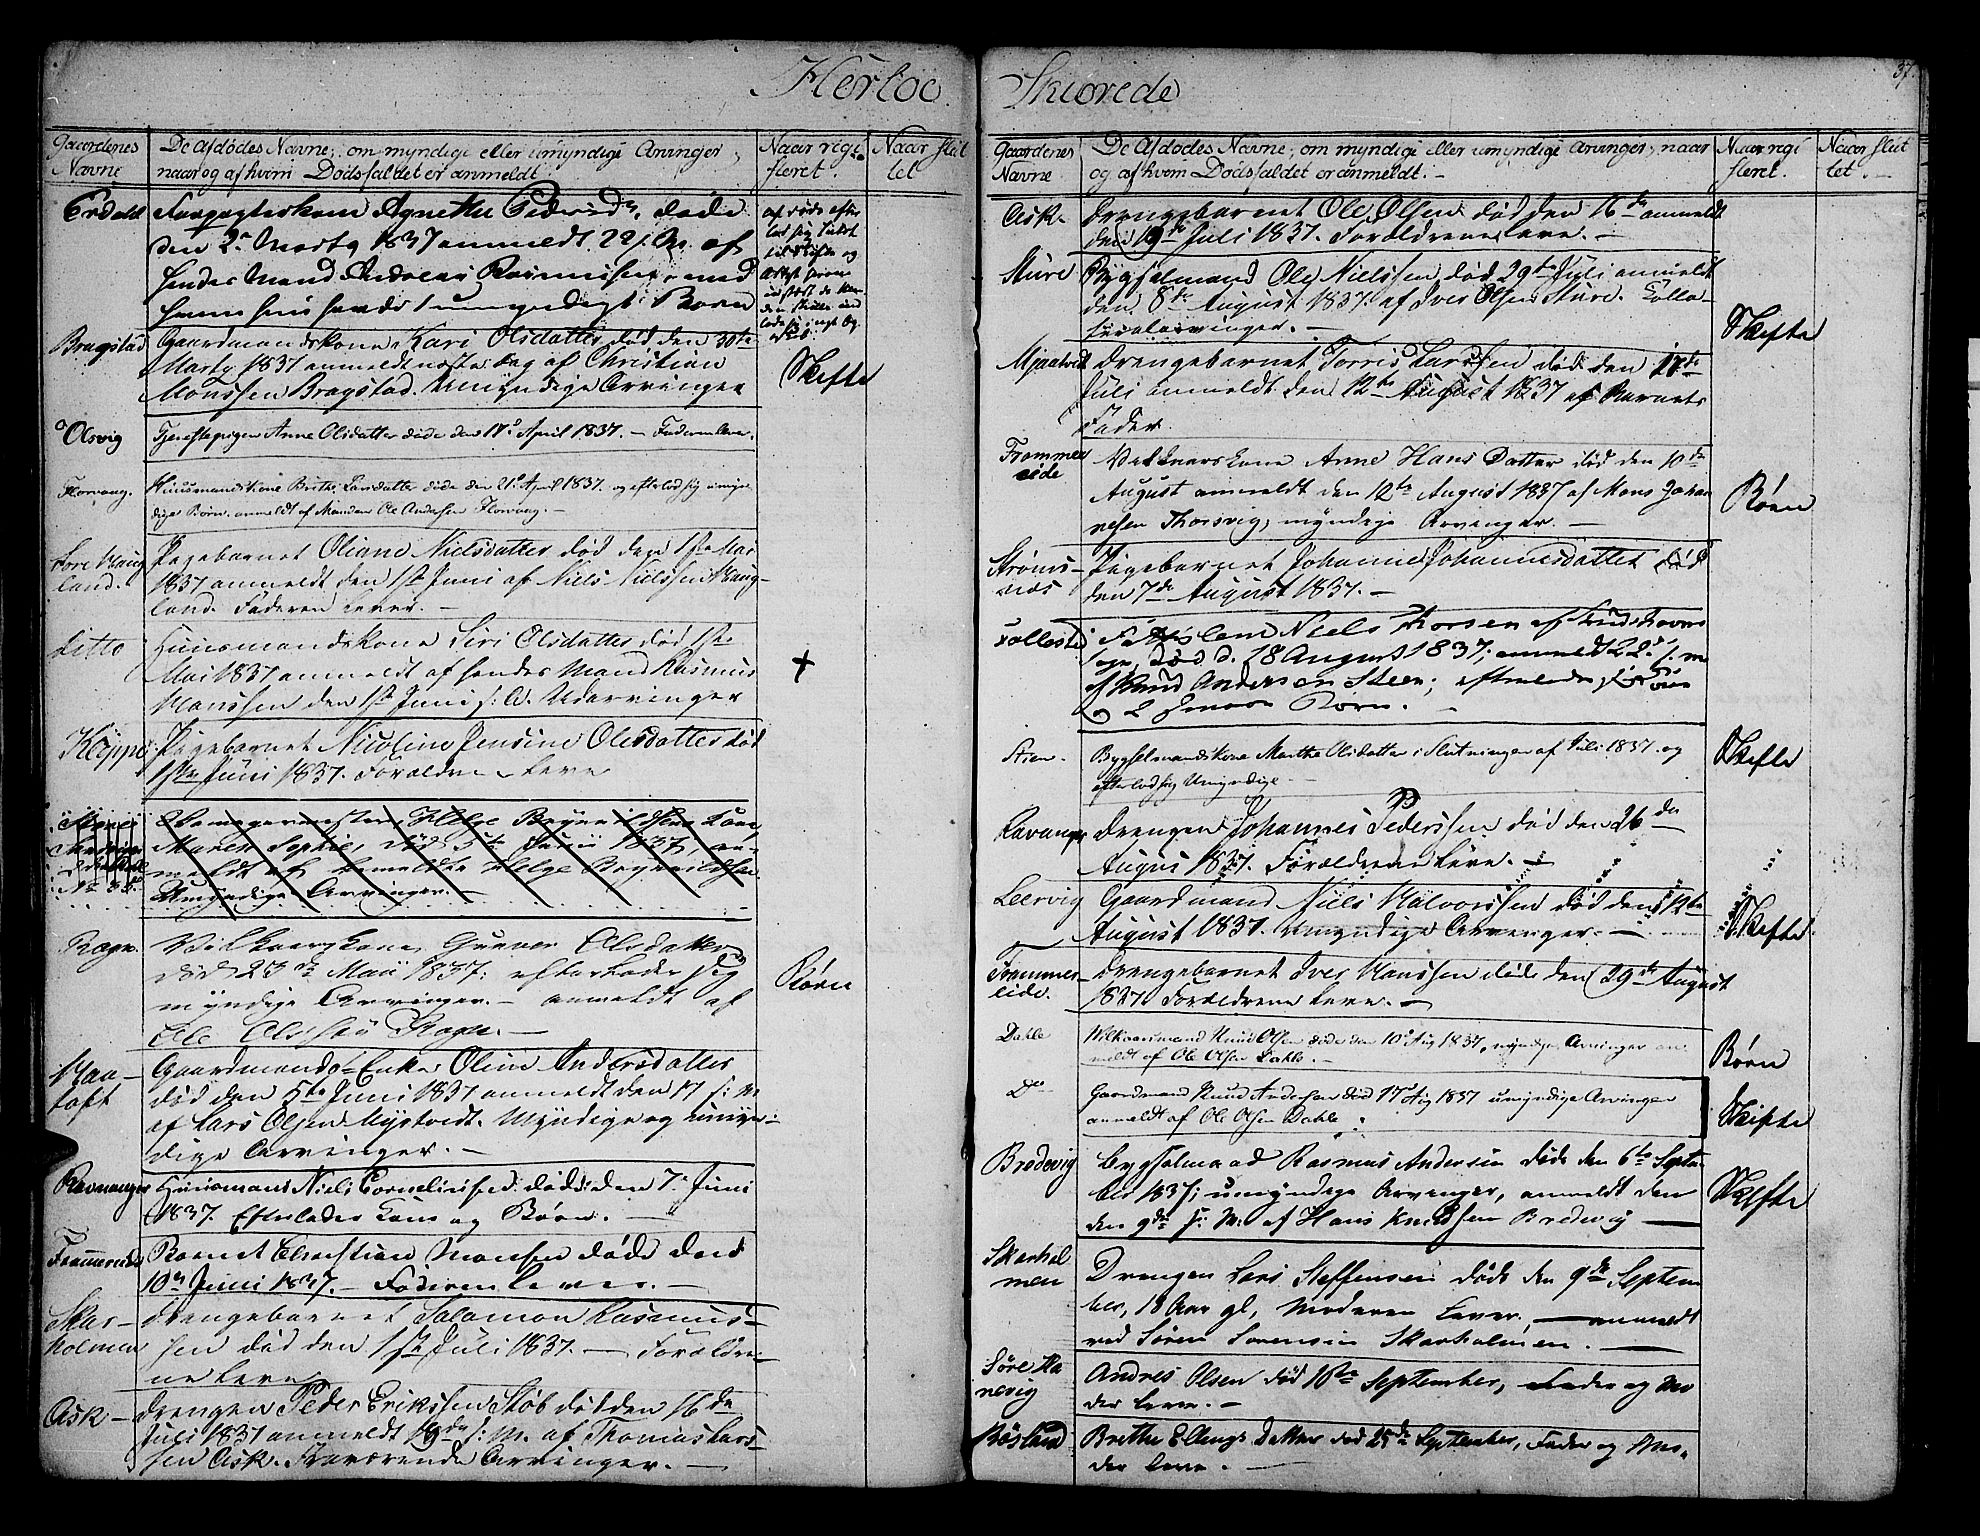 Herloe
Gaardenes Navne
De Afdödes Navne, om myndige eller umyndige Arvinger,
naar og af hvem Dödsfaldet er anmeldt.
Naar regi-
steret.
Naar slut
tet
Erdahl
Forpagterkone Agnethe Pedersd., döde
den 2 Marty 1837 anmeldt 22 s. M. af
hendes Mand Andreas Rasmussen, med
umyndige Börn
Bragstad
Gaardmandskone Kari Olsdatter död den 30te
Marty 1837 anmeldt næste Dag af Christian
Monssen Bragstad. Umyndige Arvinger
Skifte
Olsvig
Tjenstepigen Anne Olsdatter döde den 17 April 1837. – Faderen lever.
Florvaag.
Huusmandskone Brithe Larsdatter döde den 21 April 1837. og efterlod sig umyn-
dige Börn. anmeldt af Manden Ole Andersen Florvaag. –
Söre Haug
land.
Pigebarnet Oliane Nielsdatter död den 1ste Mai
1837 anmeldt den 1ste Juni af Niels Nielssen Haug-
land. Faderen lever. –
Ditto
Huusmandskone Siri Olsdatter död 1ste
Mai 1837 anmeldt af hendes Mand Rasmus
Hanssen den 1ste Juni s. A. Udarvinger
+
Kleppe
Pigebarnet Nicoline Jensine Olesdatter död
1ste Juni 1837. Forældrene leve
Helge Brynildsens Kone
Maren Sophie, död 5te Junii 1837, an-
meldt af bemeldte Helge Brynildsen.
Umyndige Arvinger. –
Rogn.
Vilkaarskone Guner Olsdatter
död 23de Mai 1837: efterlader sig
myndige Arvinger. – anmeldt af
Ole Olssen Rogn. –
Böern
Haa-
toft
Gaardmands Enke Oline Andersdatter
död den 5te Juni 1837 anmeldt den 17 s: M
af Lars Olsen Mjelstvedt. Myndige og umyn-
dige Arvinger. –
Ravnanger
Huusmand Niels Corneliussen döde den 7 Juni
1837. Efterlader Kone og Börn. –
Frammerside
Barnet Christian Monsen döde den
10de Juni 1837. – Faderen lever. –
Skar-
holmen
Drengebarnet Salomon Rasmus-
sen död den 1ste Juli 1837. – Forældre-
ne leve
Ask –
Drengen Peder Erikssen Stöb död den 16de
Juli 1837 anmeldt 19de s: M. af Thomas Lars-
sen Ask. Fraværende Arvinger. –
Skiørede
37.
Gaardenes Navne
De Afdödes Navne, om myndige eller umyndige Arvinger, naar
og af hvem Dödsfaldet er anmeldt. –
Naar regi
steret.
Naar slut
tet. –
Ask –
Drengebarnet Ole Olsen död den 16de anmeldt
den 19de Juli 1837. Forældrene leve. –
Sture
Bygselmand Ole Nielssen död 29de Juli anmeldt
den 8de August 1837. af Iver Olsen Sture. Colla-
teralarvinger. –
Skifte
Mjaatvedt
Drengebarnet Torris Larssen död den 11de
Juli anmeldt den 12te August 1837 af Barnets
Fader.
Frommer
side
Vilkaarskone Anne Hans Datter död den 10de
August anmeldt den 12te August 1837 af Mons Johan
nesen Thorsvig, myndige Arvinger. –
Böern
Ströms-
næs
Pigebarnet Johanne Johannesdatter död
den 7de August 1837. –
Follesö
Niels Thorsen af
Sogn, död d. 18 August 1837; anmeldt 22 s. M
af Knud Andersen Steen; efterlader sig Kone
og 2 smaae Börn. –
Steen –
Bygselmandskone Marthe Olsdatter i Slutningen af Juli 1837. og
efterlod sig Umyndige. –
Skifte
Ravanger
Drengen Johannes Pederssen död den 26de
August 1837. Forældrene leve. –
Leervig
Gaardmand Niels Halvorssen död den 12te
August 1837. umyndige Arvinger. –
Skifte
Frammer-
side.
Drengebarnet Iver Hanssen döde den 29de August
1837 Forældrene leve. –
Dahle
Wilkaarsmand Knud Olsen döde den 10 Aug 1837, myndige Arvinger an-
meldt af Ole Olsen Dahle. –
Böern
Do
Gaardmand Knud Andersen död 17 Aug 1837 umyndige Arvinger
anmeldt af Ole Olsen Dahle.
Skifte
Bredevig
Bygselmand Rasmus Andersen döde den 6te Septem-
ber 1837; umyndige Arvinger, anmeldt den
den 9de s: M: af Hans Knudsen Bredevig –
Skifte
Skarhol
men
Drengen Lars Steffensen döde den 9de Septem
ber, 18 Aar gl, Moderen lever, – anmeldt
ved Sören Sörensen Skarholmen. –
Söre Ha
nevig
Andres Olsen död 18de September, Fader og Mo
der leve. –
Rösland
Brithe Ellings Datter död 25de September, Fader og Mo-
der leve. –